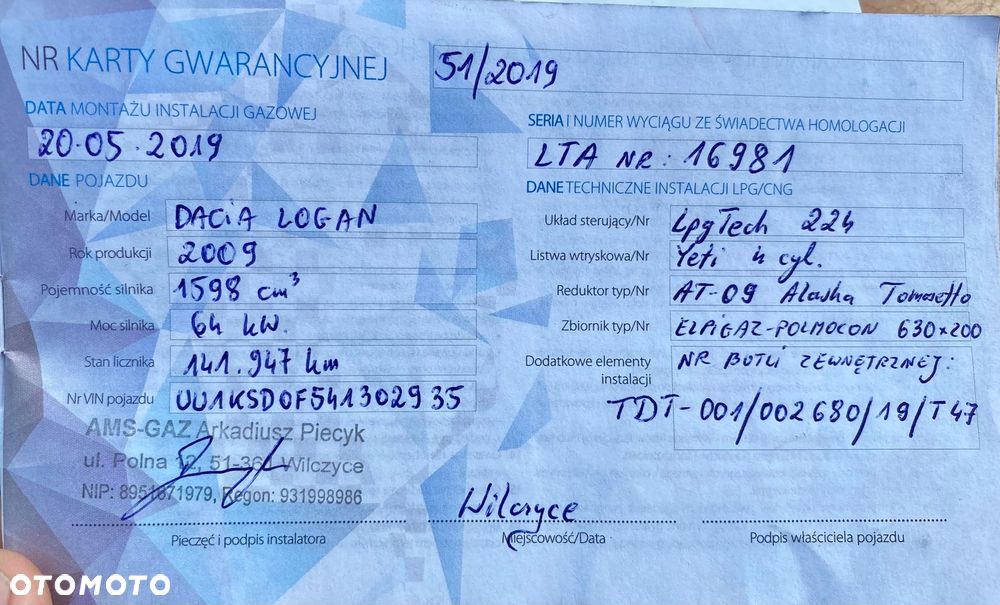 NR KARTY GWARANCYJNEJ 51/2019
DATA MONTAŻU INSTALACJI GAZOWEJ
20.05.2019
DANE POJAZDU
Marka/Model DACIA LOGAN
Rok produkcji 2009
Pojemność silnika 1598 cm³
Moc silnika 64 kW.
Stan licznika 141.947 km
Nr VIN pojazdu UU1KSD0F541302935
SERIA I NUMER WYCIĄGU ZE ŚWIADECTWA HOMOLOGACJI
LTA NR: 16981
DANE TECHNICZNE INSTALACJI LPG/CNG
Układ sterujący/Nr LpgTech 224
Listwa wtryskowa/Nr Yeti 4 cyl.
Reduktor typ/Nr AT-09 Alaska Tomasetto
Zbiornik typ/Nr ELPIGAZ-POLMOCON 630x200
Dodatkowe elementy instalacji NR BUTLI ZEWNĘTRZNEJ:
TDT-001/002680/19/T47
AMS-GAZ Arkadiusz Piecyk
ul. Polna 12, 51-361 Wilczyce
NIP: 8951871979, Regon: 931998986
Wilczyce
Pieczęć i podpis instalatora
Miejscowość/Data
Podpis właściciela pojazdu
OTOMOTO